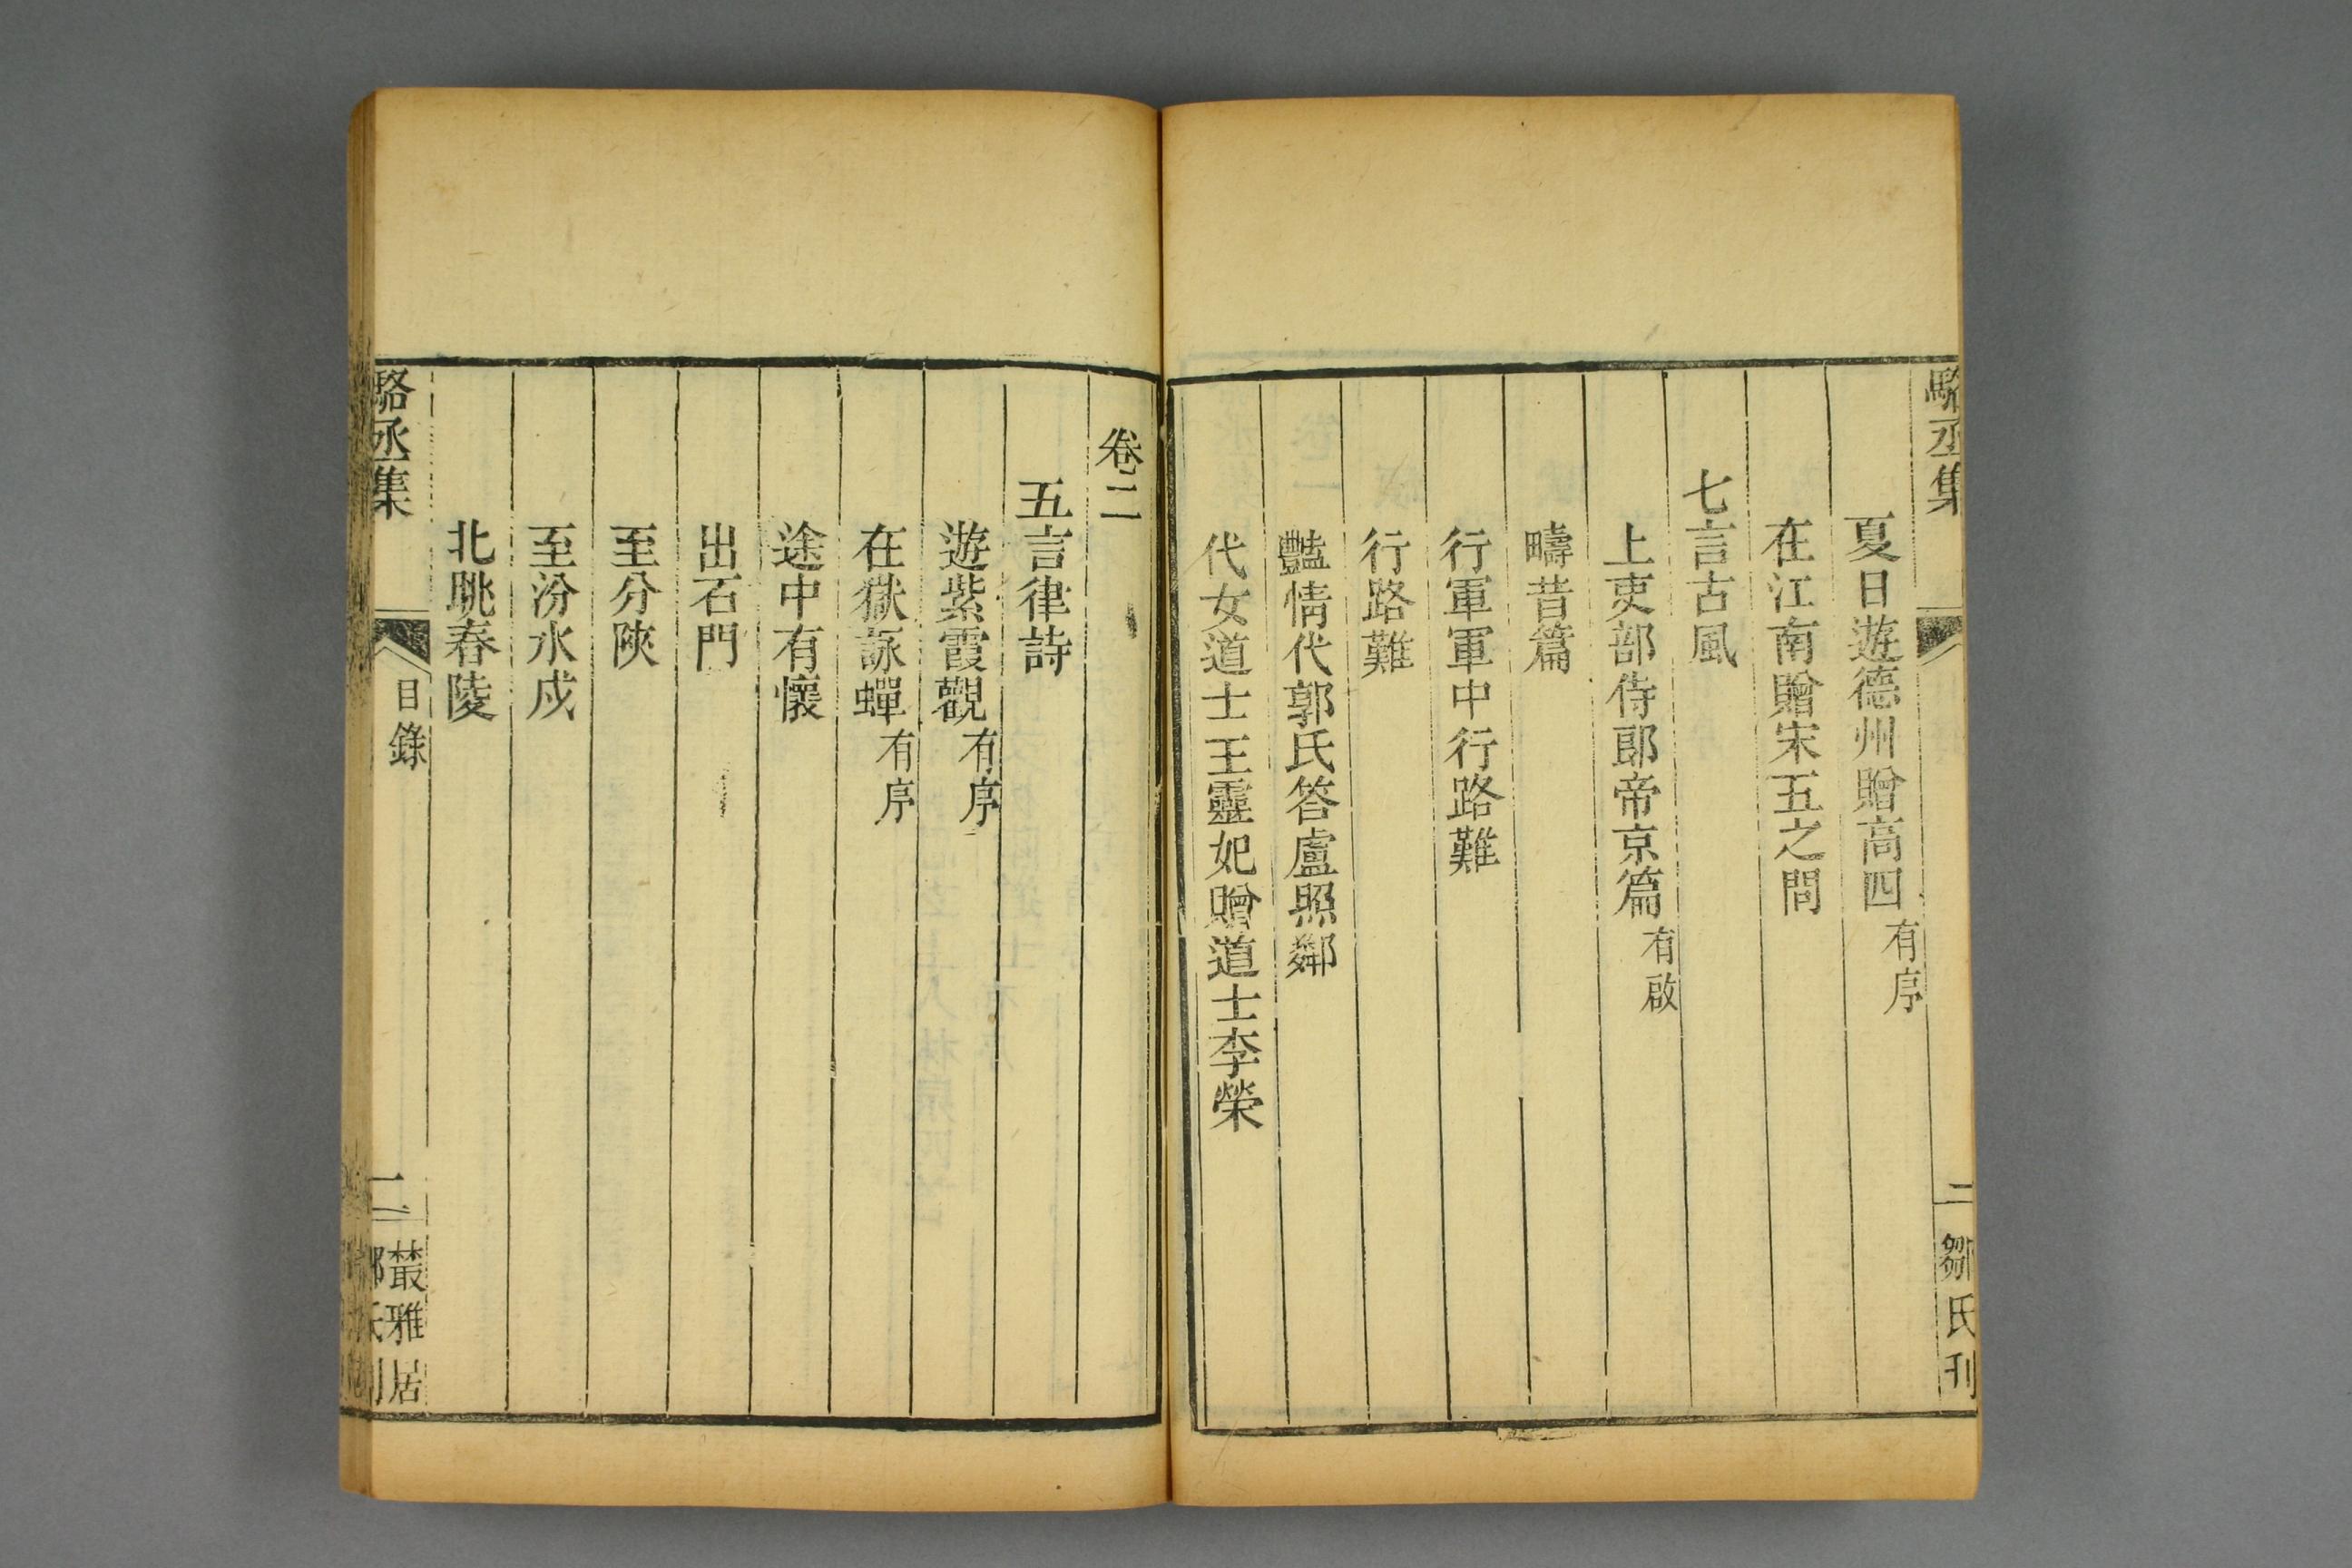 駱丞集
二
鄒氏刊
夏日遊德州贈高四有序
在江南贈宋五之問
七言古風
上吏部侍郎帝京篇有啟
疇昔篇
行軍軍中行路難
行路難
豔情代郭氏答盧照鄰
代女道士王靈妃贈道士李榮
卷二
五言律詩
遊紫霞觀有序
在獄詠蟬有序
途中有懷
出石門
至分陝
至汾水戍
北眺舂陵
駱丞集
目錄
二
叢雅居